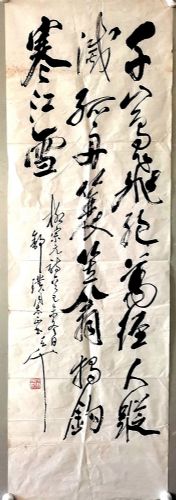 千山鳥飛絕萬徑人蹤
滅孤舟蓑笠翁獨釣
寒江雪
柳宗元詩